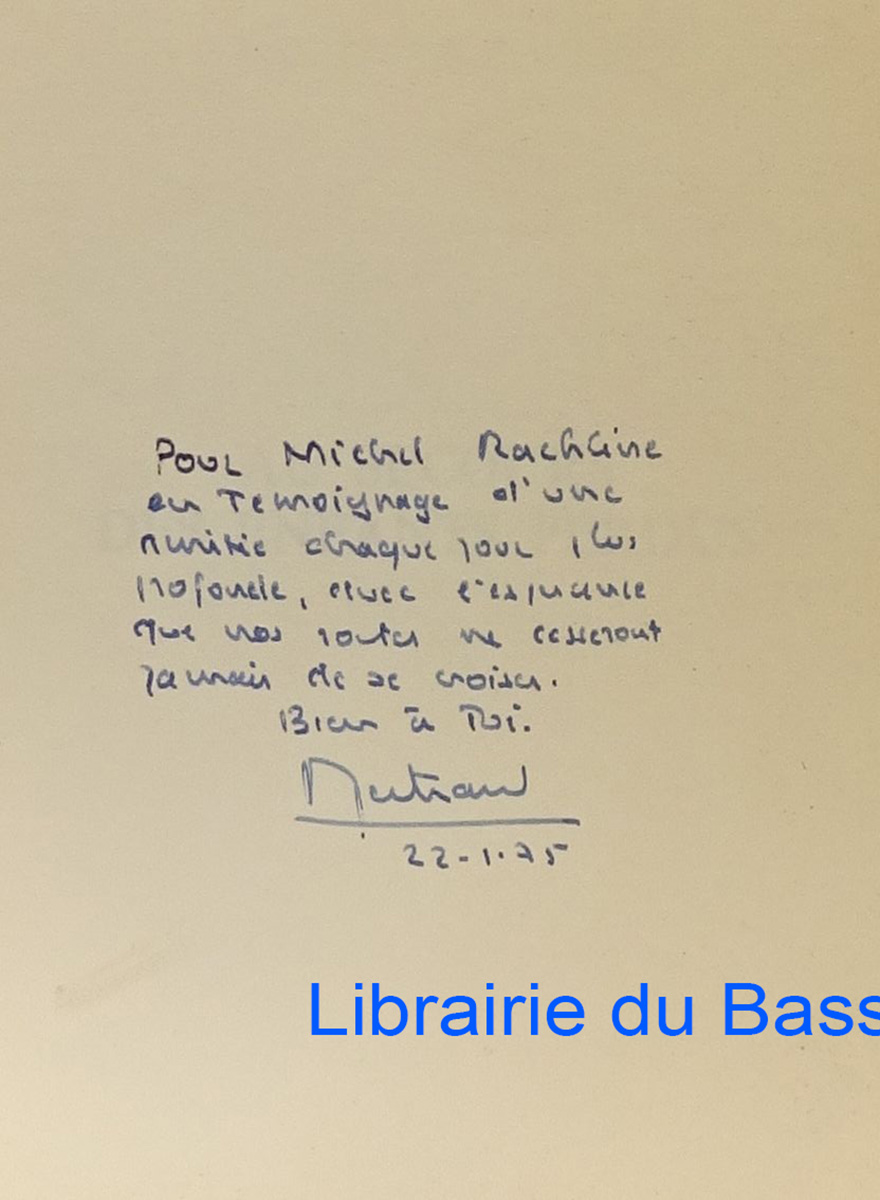 Pour Michel Rachline
en Témoignage d'une
amitié chaque jour plus
profonde, avec l'espérance
que nos routes ne cesseront
jamais de se croiser.
Bien à Toi.
Bertrand
22-1-75
Librairie du Bass